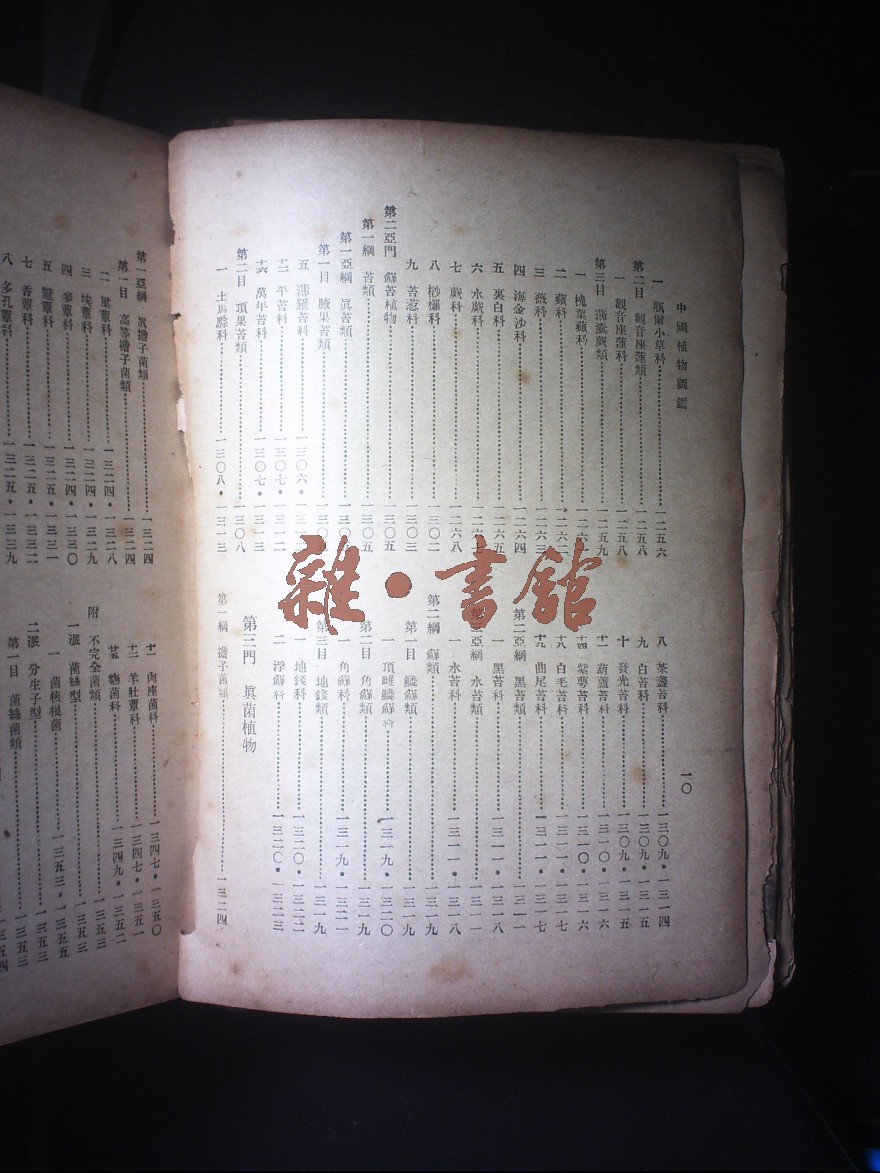 中國植物圖鑑
一〇
一 瓶爾小草科……一二五六
第二目 觀音座蓮類……一二五八
一 觀音座蓮科……一二五八
第三目 薄囊蕨類……一二五九
一 槐葉蘋科……一二六
二 蘋科……一二六二
三 薇科……一二六三
四 海金沙科……一二六四
五 裏白科……一二六五
六 水蕨科……一二六
七 蕨科……一二六八
八 桫欏科……一三〇二
九 苔葱科……一三〇三
第二亞門 蘚苔植物……一三〇五
第一綱 苔類……一三〇五
第一亞綱 眞苔類……一三〇
第一目 腋果苔類……一三〇
五 薄羅苔科……一三〇六・一三一
十二 平苔科……一三〇七・一三一二
十六 萬年苔科……一三〇七・一三一三
第二目 頂果苔類……一三〇八
一 土馬騌科……一三〇八・一三一三
八 茶盞苔科……一三〇九・一三一四
九 白苔科……一三〇九・一三一五
十 發光苔科……一三〇九・一三一五
十一 葫蘆苔科……一三一〇・一三一六
十四 紫萼苔科……一三一〇・一三一六
十八 白毛苔科……一三一一・一三一七
十九 曲尾苔科……一三一一・一三一七
第二亞綱 黑苔類……一三一一
一 黑苔科……一三一一・一三一八
第三亞綱 水苔類……一三一一
一 水苔科……一三一一・一三一八
第二綱 蘚類……一三一九
第一目 鱗蘚類……一三一九
一 頂雌鱗蘚科……一三一九・一三二〇
第二目 角蘚類……一三一九
一 角蘚科……一三一九・一三二一
第三目 地錢類……一三一九
一 地錢科……一三二〇・一三二二
二 浮蘚科……一三二〇・一三二三
第三門 眞菌植物
第一綱 擔子菌類……一三二四
第一亞綱 眞擔子菌類……一三二四
第一目 高等擔子菌類……一三二四
二 蕈科……一三二四・一三二八
三 埃蕈科……一三二四・一三二九
四 蓼蕈科……一三二四・一三三〇
五 蕈科……一三二五・一三三一
七 香蕈科……一三二五・一三三二
八 多孔蕈科……一三二五・一三三九
十一 肉座菌科……一三四七・一三五〇
十二 羊肚蕈科……一三四七・一三五一
麴菌科……一三四九・一三五二
附 不完全菌類……一三五三
一派 菌絲型……一三五三
一 菌核根菌……一三五三・一三五五
二派 分生子型……一三五三
第一目 菌絲菌類……一三五三
一三五四
雜・書館